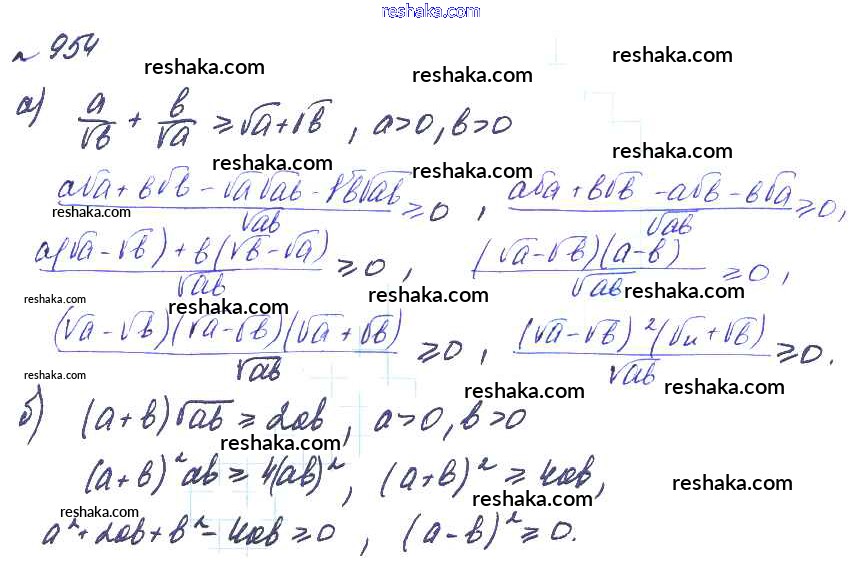 www.reshaka.com
№ 954
reshaka.com reshaka.com reshaka.com
а) a/√b + b/√a ≥ √a + √b , a>0, b>0
reshaka.com reshaka.com reshaka.com
(a√a + b√b − √a√ab − √b√ab)/√ab ≥ 0 , (a√a + b√b − a√b − b√a)/√ab ≥ 0,
reshaka.com reshaka.com reshaka.com
(a(√a − √b) + b(√b − √a))/√ab ≥ 0 , ((√a − √b)(a − b))/√ab ≥ 0 ,
reshaka.com reshaka.com reshaka.com
((√a − √b)(√a − √b)(√a + √b))/√ab ≥ 0 , ((√a − √b)²(√a + √b))/√ab ≥ 0.
reshaka.com reshaka.com reshaka.com
б) (a + b)√ab ≥ 2ab , a>0, b>0
reshaka.com reshaka.com
(a + b)²ab ≥ 4(ab)² , (a + b)² ≥ 4ab,
reshaka.com reshaka.com reshaka.com
a² + 2ab + b² − 4ab ≥ 0 , (a − b)² ≥ 0.